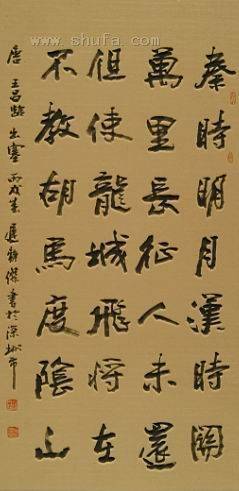 www.shufa.com
秦時明月漢時關
萬里長征人未還
但使龍城飛將在
不教胡馬度陰山
唐 王昌齡 出塞 丙戌 書於深圳市